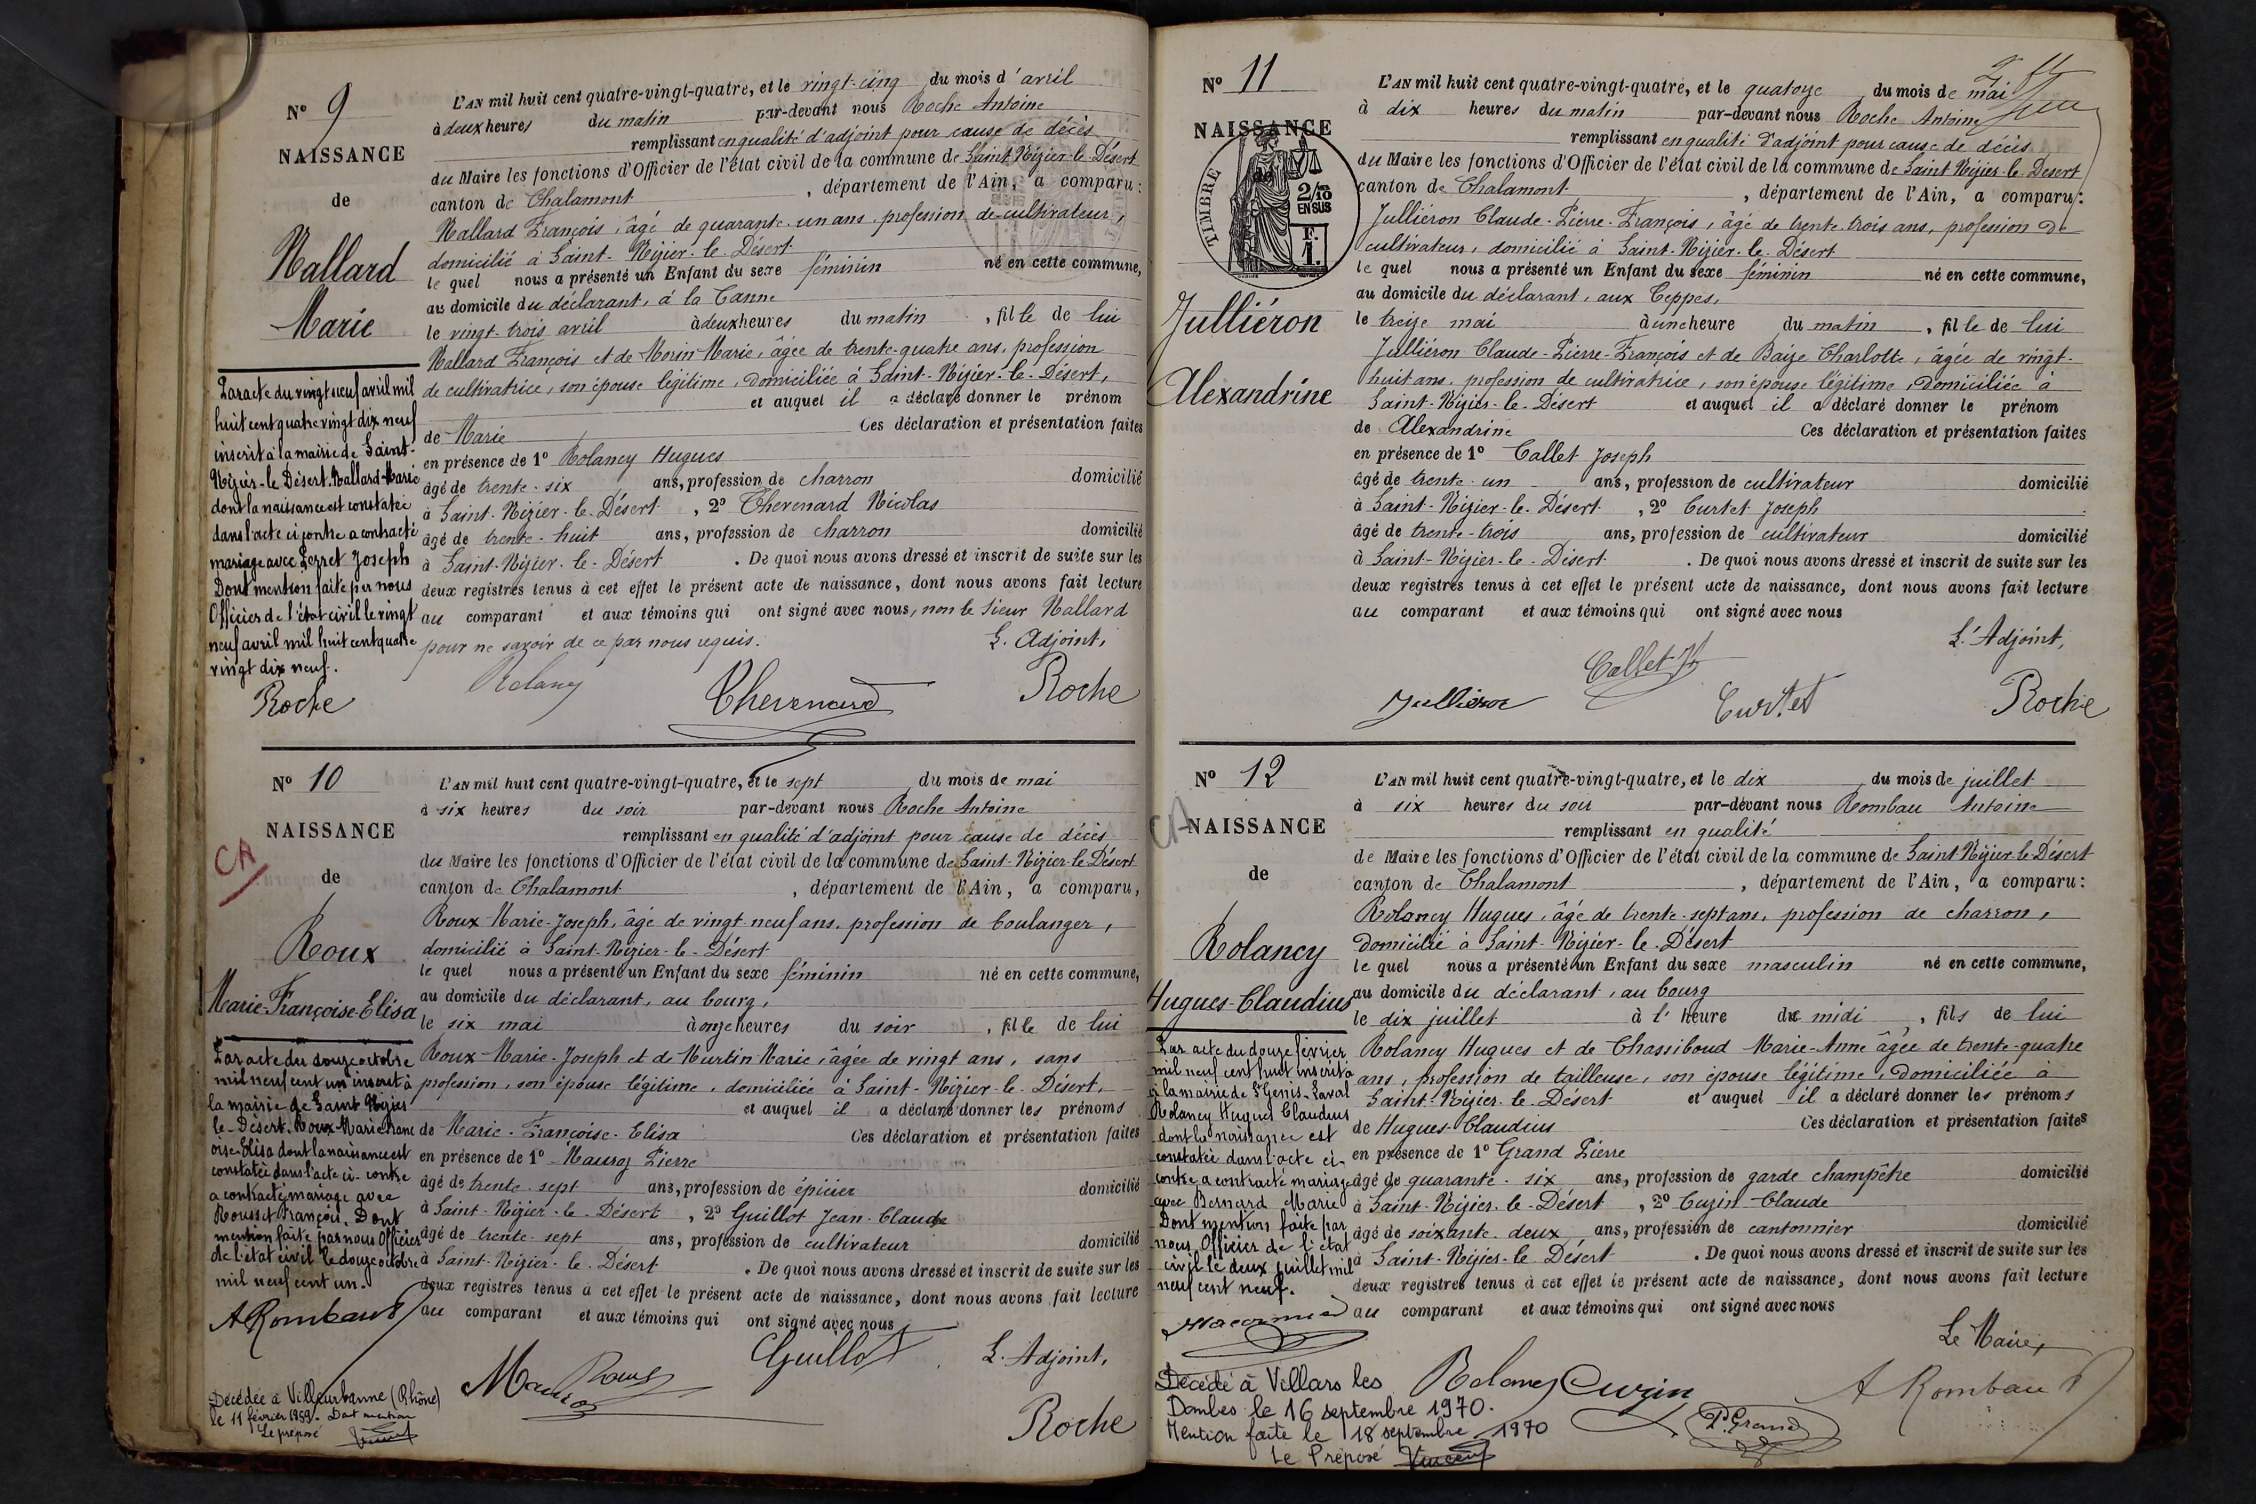 Nº 9
NAISSANCE
de
Nallard
Marie
L'AN mil huit cent quatre-vingt-quatre, et le vingt-cinq du mois d'avril
à deux heures du matin par-devant nous Roche Antoine
remplissant en qualité d'adjoint pour cause de décès
du Maire les fonctions d'Officier de l'état civil de la commune de Saint-Nizier-le-Désert
canton de Chalamont, département de l'Ain, a comparu:
Nallard François, âgé de quarante-un ans, profession de cultivateur,
domicilié à Saint-Nizier-le-Désert
le quel nous a présenté un Enfant du sexe féminin né en cette commune,
au domicile du déclarant, à la
le vingt-trois avril à deux heures du matin, fille de lui
Nallard François et de Morin Marie, âgée de trente-quatre ans, profession
de cultivatrice, son épouse légitime, domiciliée à Saint-Nizier-le-Désert,
et auquel il a déclaré donner le prénom
de Marie Ces déclaration et présentation faites
en présence de 1º Rolancy Hugues
âgé de trente-six ans, profession de charron domicilié
à Saint-Nizier-le-Désert, 2º Thevenard Nicolas
âgé de trente-huit ans, profession de charron domicilié
à Saint-Nizier-le-Désert. De quoi nous avons dressé et inscrit de suite sur les
deux registres tenus à cet effet le présent acte de naissance, dont nous avons fait lecture
au comparant et aux témoins qui ont signé avec nous, non le sieur Nallard
pour ne savoir de ce par nous requis.
L'Adjoint,
Rolancy Thevenard Roche
Par acte du vingt neuf avril mil
huit cent quatre vingt dix neuf
inscrit à la mairie de Saint-
Nizier-le-Désert. Nallard-Marie
dont la naissance est constatée
dans l'acte ci contre a contracté
mariage avec Perret Joseph
Dont mention faite par nous
Officier de l'état civil le vingt
neuf avril mil huit cent quatre
vingt dix neuf.
Roche
Nº 10
NAISSANCE
CA
de
Roux
Marie-Françoise-Elisa
L'AN mil huit cent quatre-vingt-quatre, et le sept du mois de mai
à six heures du soir par-devant nous Roche Antoine
remplissant en qualité d'adjoint pour cause de décès
du Maire les fonctions d'Officier de l'état civil de la commune de Saint-Nizier-le-Désert
canton de Chalamont, département de l'Ain, a comparu,
Roux-Marie-Joseph, âgé de vingt neuf ans, profession de boulanger,
domicilié à Saint-Nizier-le-Désert
le quel nous a présenté un Enfant du sexe féminin né en cette commune,
au domicile du déclarant, au bourg,
le six mai à onze heures du soir, fille de lui
Roux-Marie-Joseph et de Murtin Marie, âgée de vingt ans, sans
profession, son épouse légitime, domiciliée à Saint-Nizier-le-Désert,
et auquel il a déclaré donner les prénoms
de Marie-Françoise-Elisa Ces déclaration et présentation faites
en présence de 1º Mauroz Pierre
âgé de trente-sept ans, profession de épicier domicilié
à Saint-Nizier-le-Désert, 2º Guillot Jean-Claude
âgé de trente-sept ans, profession de cultivateur domicilié
à Saint-Nizier-le-Désert. De quoi nous avons dressé et inscrit de suite sur les
deux registres tenus à cet effet le présent acte de naissance, dont nous avons fait lecture
au comparant et aux témoins qui ont signé avec nous
Guillot L'Adjoint,
Mauroz Roux Roche
Par acte du douze octobre
mil neuf cent un inscrit à
la mairie de Saint Nizier
le-Désert. Roux-Marie Franç
oise-Elisa dont la naissance est
constatée dans l'acte ci-contre
a contracté mariage avec
Rousset François. Dont
mention faite par nous Officier
de l'état civil le douze octobre
mil neuf cent un.
A Rombau
Décédée à Villeurbanne (Rhône)
le 11 février 1959. Dont mention
Le préposé
Nº 11
NAISSANCE
de
TIMBRE
2/10 EN SUS
F. 1.
Julliéron
Alexandrine
L'AN mil huit cent quatre-vingt-quatre, et le quatorze du mois de mai
à dix heures du matin par-devant nous Roche Antoine
remplissant en qualité d'adjoint pour cause de décès
du Maire les fonctions d'Officier de l'état civil de la commune de Saint Nizier-le-Désert
canton de Chalamont, département de l'Ain, a comparu:
Julliéron Claude-Pierre-François, âgé de trente-trois ans, profession de
cultivateur, domicilié à Saint-Nizier-le-Désert
le quel nous a présenté un Enfant du sexe féminin né en cette commune,
au domicile du déclarant, aux Teppes,
le treize mai à une heure du matin, fille de lui
Julliéron Claude-Pierre-François et de Baize Charlotte, âgée de vingt-
huit ans, profession de cultivatrice, son épouse légitime, domiciliée à
Saint-Nizier-le-Désert et auquel il a déclaré donner le prénom
de Alexandrine Ces déclaration et présentation faites
en présence de 1º Callet Joseph
âgé de trente-un ans, profession de cultivateur domicilié
à Saint-Nizier-le-Désert, 2º Curtet Joseph
âgé de trente-trois ans, profession de cultivateur domicilié
à Saint-Nizier-le-Désert. De quoi nous avons dressé et inscrit de suite sur les
deux registres tenus à cet effet le présent acte de naissance, dont nous avons fait lecture
au comparant et aux témoins qui ont signé avec nous
L'Adjoint,
Callet Jh
Julliéron Curtet Roche
Nº 12
CA
NAISSANCE
de
Rolancy
Hugues-Claudius
L'AN mil huit cent quatre-vingt-quatre, et le dix du mois de juillet
à six heures du soir par-devant nous Rombau Antoine
remplissant en qualité
de Maire les fonctions d'Officier de l'état civil de la commune de Saint Nizier-le-Désert
canton de Chalamont, département de l'Ain, a comparu:
Rolancy Hugues, âgé de trente-sept ans, profession de charron,
domicilié à Saint-Nizier-le-Désert
le quel nous a présenté un Enfant du sexe masculin né en cette commune,
au domicile du déclarant, au bourg
le dix juillet à l'heure de midi, fils de lui
Rolancy Hugues et de Chassiboud Marie-Anne âgée de trente-quatre
ans, profession de tailleuse, son épouse légitime, domiciliée à
Saint-Nizier-le-Désert et auquel il a déclaré donner les prénoms
de Hugues-Claudius Ces déclaration et présentation faites
en présence de 1º Grand Pierre
âgé de quarante-six ans, profession de garde champêtre domicilié
à Saint-Nizier-le-Désert, 2º Cuzin Claude
âgé de soixante-deux ans, profession de cantonnier domicilié
à Saint-Nizier-le-Désert. De quoi nous avons dressé et inscrit de suite sur les
deux registres tenus à cet effet le présent acte de naissance, dont nous avons fait lecture
au comparant et aux témoins qui ont signé avec nous
Le Maire,
Rolancy Cuzin A Rombau
P. Grand
Par acte du douze février
mil neuf cent huit inscrit à
à la mairie de St Genis-Laval
Rolancy Hugues Claudius
dont la naissance est
constatée dans l'acte ci-
contre a contracté mariage
avec Bernard Marie
Dont mention faite par
nous Officier de l'état
civil le deux juillet mil
neuf cent neuf.
Décédé à Villars les
Dombes le 16 septembre 1970.
Mention faite le 18 septembre 1970
Le Préposé Vincent